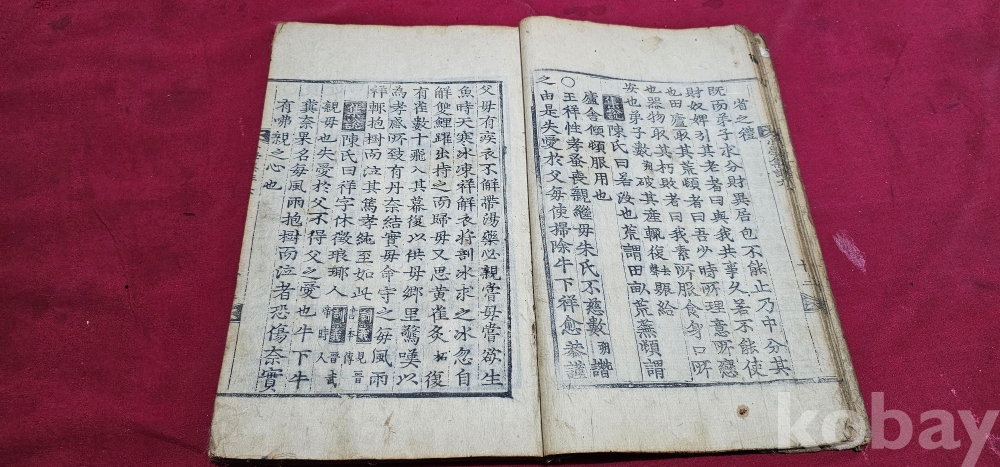 省之禮
既而弟子求分財異居包不能止乃中分其
財奴婢引其老者曰與我共事久若不能使
也田廬取其荒頓者曰吾少時所理意所戀
也器物取其朽敗者曰我素所服食身口所
安也弟子數破其產輒復賑給
集說陳氏曰若汝也荒謂田畝荒蕪頓謂
廬舍傾頹服用也
○王祥性孝蚤喪親繼母朱氏不慈數朔譖
之由是失愛於父每使掃除牛下祥愈恭謹
父母有疾衣不解帶湯藥必親嘗母嘗欲生
魚時天寒冰凍祥解衣將剖冰求之冰忽自
解雙鯉躍出持之而歸母又思黃雀炙柘復
有雀數十飛入其幕復以供母鄉里驚嘆以
為孝感所致有丹奈結實母命守之每風雨
祥輒抱樹而泣其篤孝純至如此訓義見晉書本傳
集說陳氏曰祥字休徵琅琊人訓義晉武帝時人
親母也失愛於父不得父之愛也牛下牛
糞奈果名每風雨抱樹而泣者恐傷奈實
有咈親之心也
kobay